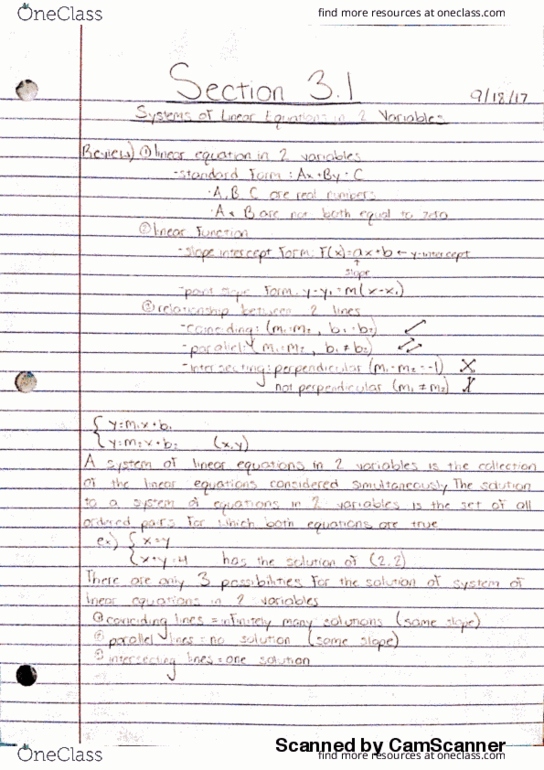 OneClass
find more resources at oneclass.com
Section 3.1
9/18/17
Systems of Linear Equations in 2 Variables
Review) ① linear equation in 2 variables
-standard form: Ax+By=C
·A,B,C are real numbers
·A & B are not both equal to zero
② linear function
-slope intercept form: F(x)=ax+b ← y-intercept
↑
slope
-point slope form: y-y₁=m(x-x₁)
③ relationship between 2 lines
-coinciding: (m₁=m₂, b₁=b₂)
-parallel: (m₁=m₂, b₁≠b₂)
-intersecting: perpendicular (m₁·m₂=-1)
not perpendicular (m₁≠m₂)
{ y=m₁x+b₁
{ y=m₂x+b₂ (x,y)
A system of linear equations in 2 variables is the collection
of the linear equations considered simultaneously. The solution
to a system of equations in 2 variables is the set of all
ordered pairs for which both equations are true
ex) { x=y
{ x+y=4 has the solution of (2,2)
There are only 3 possibilities for the solution of system of
linear equations in 2 variables
coinciding lines = infinitely many solutions (same slope)
parallel lines = no solution (same slope)
intersecting lines = one solution
Scanned by CamScanner
OneClass
find more resources at oneclass.com